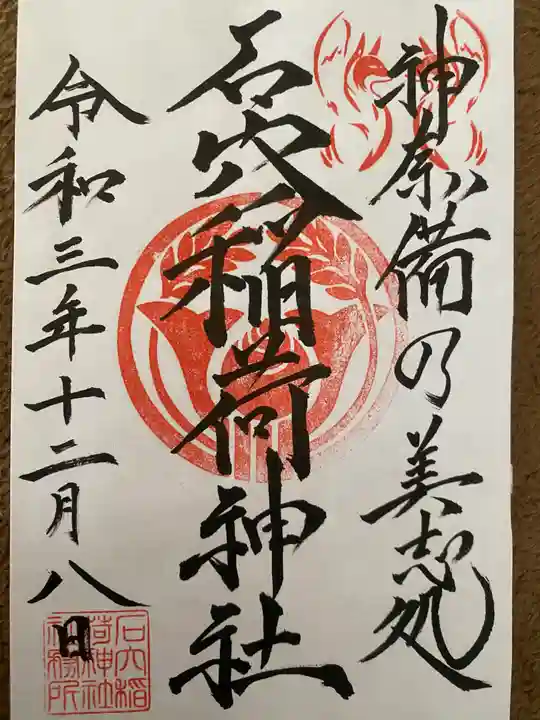 神奈備乃美志処
石穴稲荷神社
令和三年十二月八日
石穴稲
荷神社
社務所